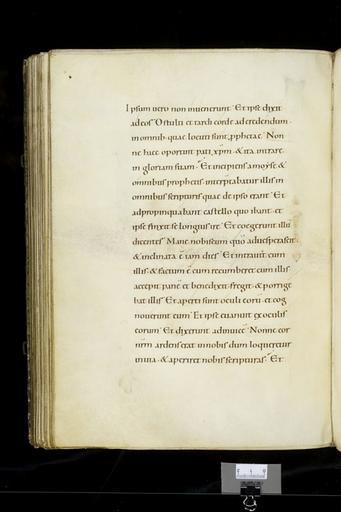 Ipsum uero non inuenerunt. Et ipse dixit
ad eos. O stulti et tardi corde ad credendum.
in omnib; quae locuti sunt pphetae. Non
ne haec oportuit pati xpm. & ita intrare
in gloriam suam. Et incipiens a moyse &
omnibus prophetis. interptabatur illis in
omnibus scripturis quae de ipso erant. Et
adpropinquabant castello quo ibant. et
ipse finxit se longius ire. Et coegerunt illū
dicentes. Mane nobiscum quō aduesperascit.
& inclinata ē iam dies. Et intrauit cum
illis. & factum ē cum recumberet cum illis
accepit panē et benedixit. fregit. & porrige
bat illis. Et aperti sunt oculi eorū. et cog
nouerunt eum. Et ipse euanuit ex oculis
eorum. Et dixerunt adinuicē. Nonne cor
nrm ardens erat in nobis dum loqueretur
in uia. & aperiret nobis scripturas. Et